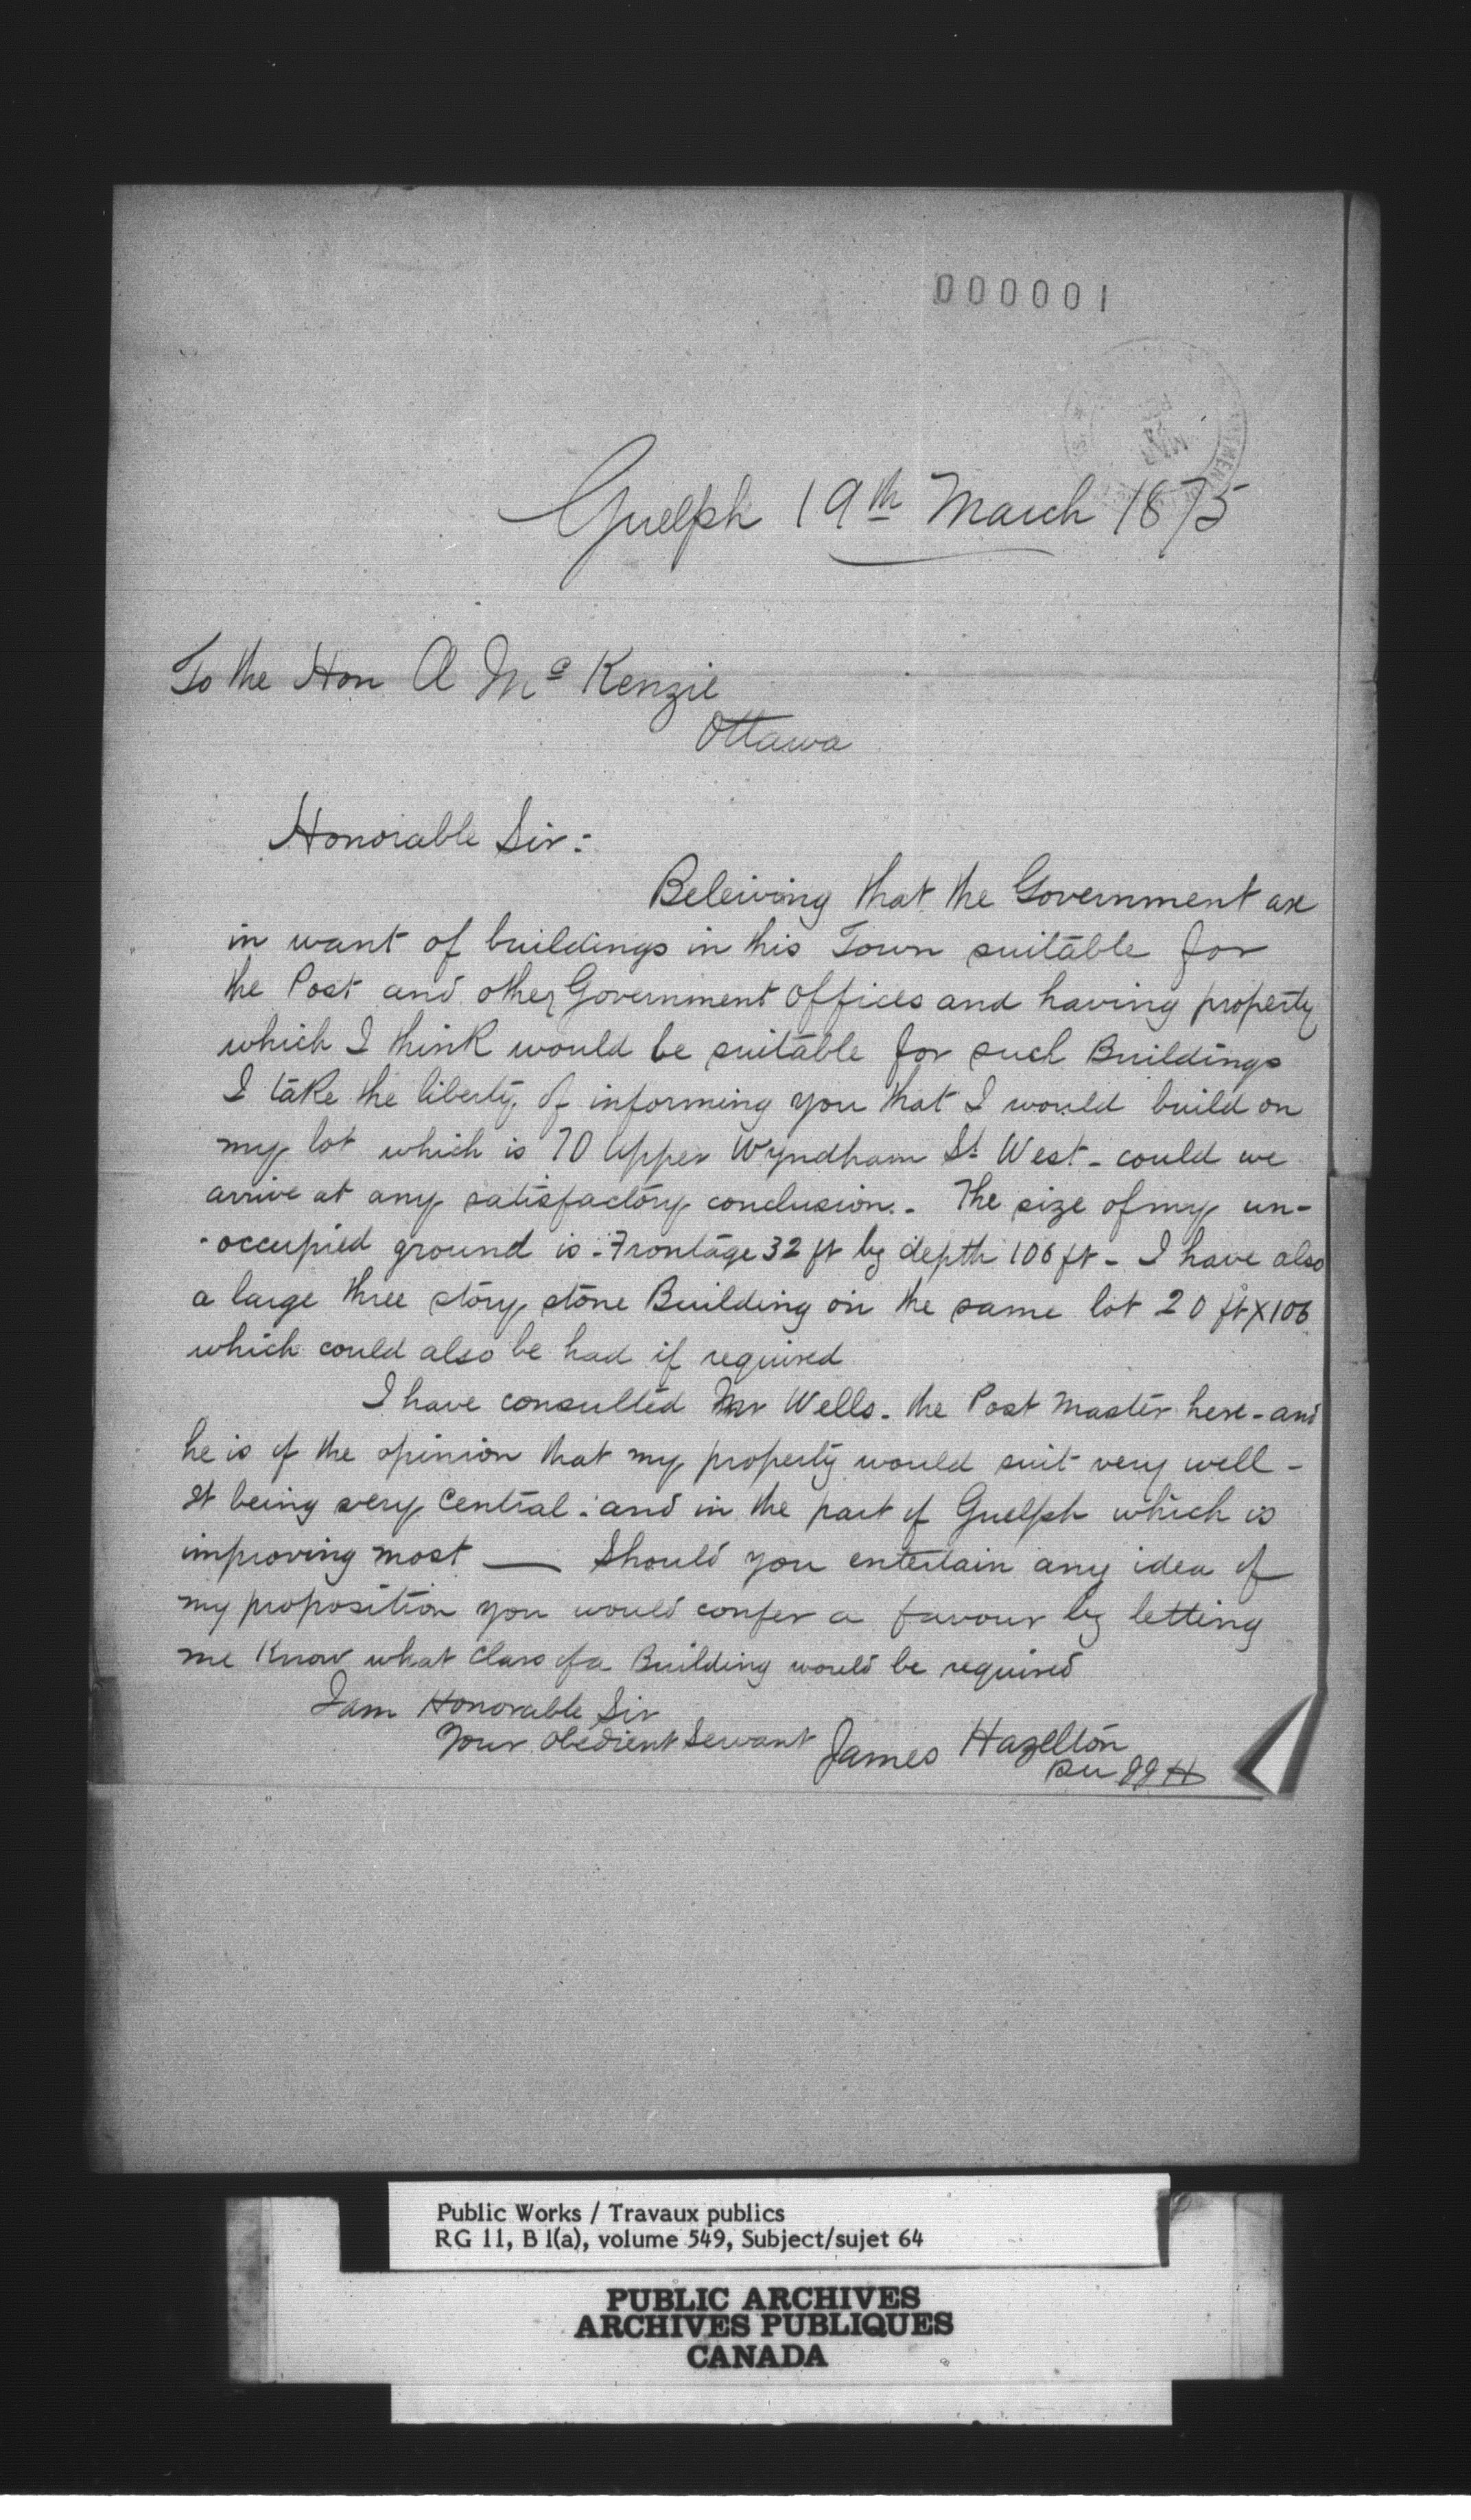 000001
Guelph 19th March 1875
To the Hon A Mc Kenzie
Ottawa
Honorable Sir:
Beleiving that the Government are
in want of buildings in this Town suitable for
the Post and other Government offices and having property
which I think would be suitable for such Buildings
I take the liberty of informing you that I would build on
my lot which is 70 Upper Wyndham St West - could we
arrive at any satisfactory conclusion. - The size of my un-
-occupied ground is - Frontage 32 ft by depth 106 ft - I have also
a large three story stone Building on the same lot 20 ft x 106
which could also be had if required
I have consulted Mr Wells - the Post Master here - and
he is of the opinion that my property would suit very well -
It being very Central : and in the part of Guelph which is
improving most — Should you entertain any idea of
my proposition you would confer a favour by letting
me Know what Class of a Building would be required
I am Honorable Sir
Your Obedient Servant James Hazelton
Per JJH
Public Works / Travaux publics
RG 11, B 1(a), volume 549, Subject/sujet 64
PUBLIC ARCHIVES
ARCHIVES PUBLIQUES
CANADA